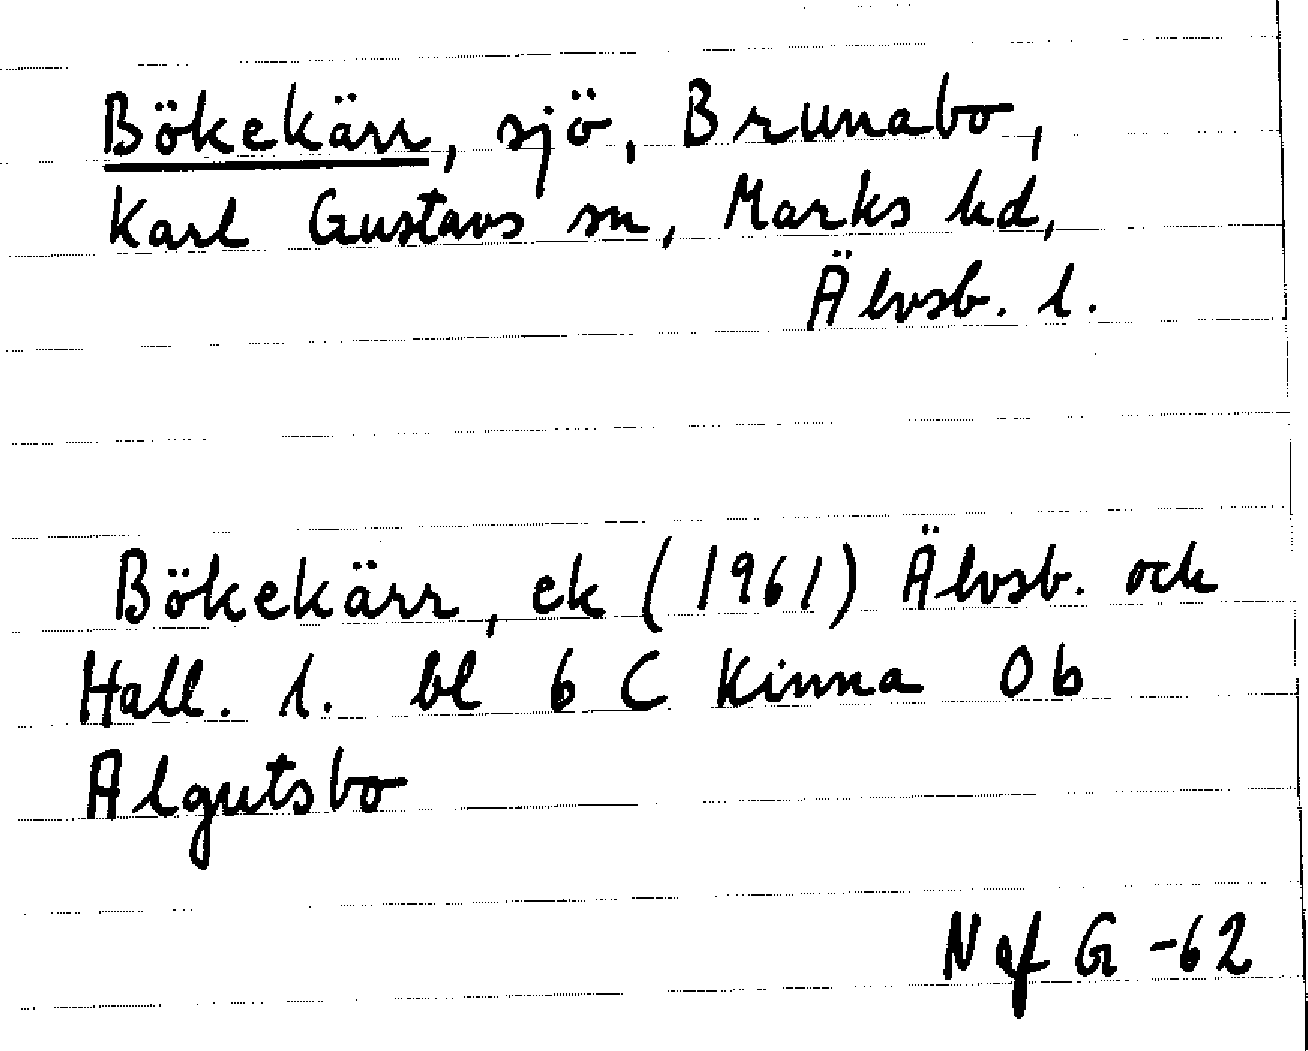 Bökekärr, sjö, Brunabo,
Karl Gustavs sn, Marks hd,
Älvsb. l.
Bökekärr, ek (1961) Älvsb. och
Hall. l. bl 6 C Kinna 0b
Algutsbo
N af G -62